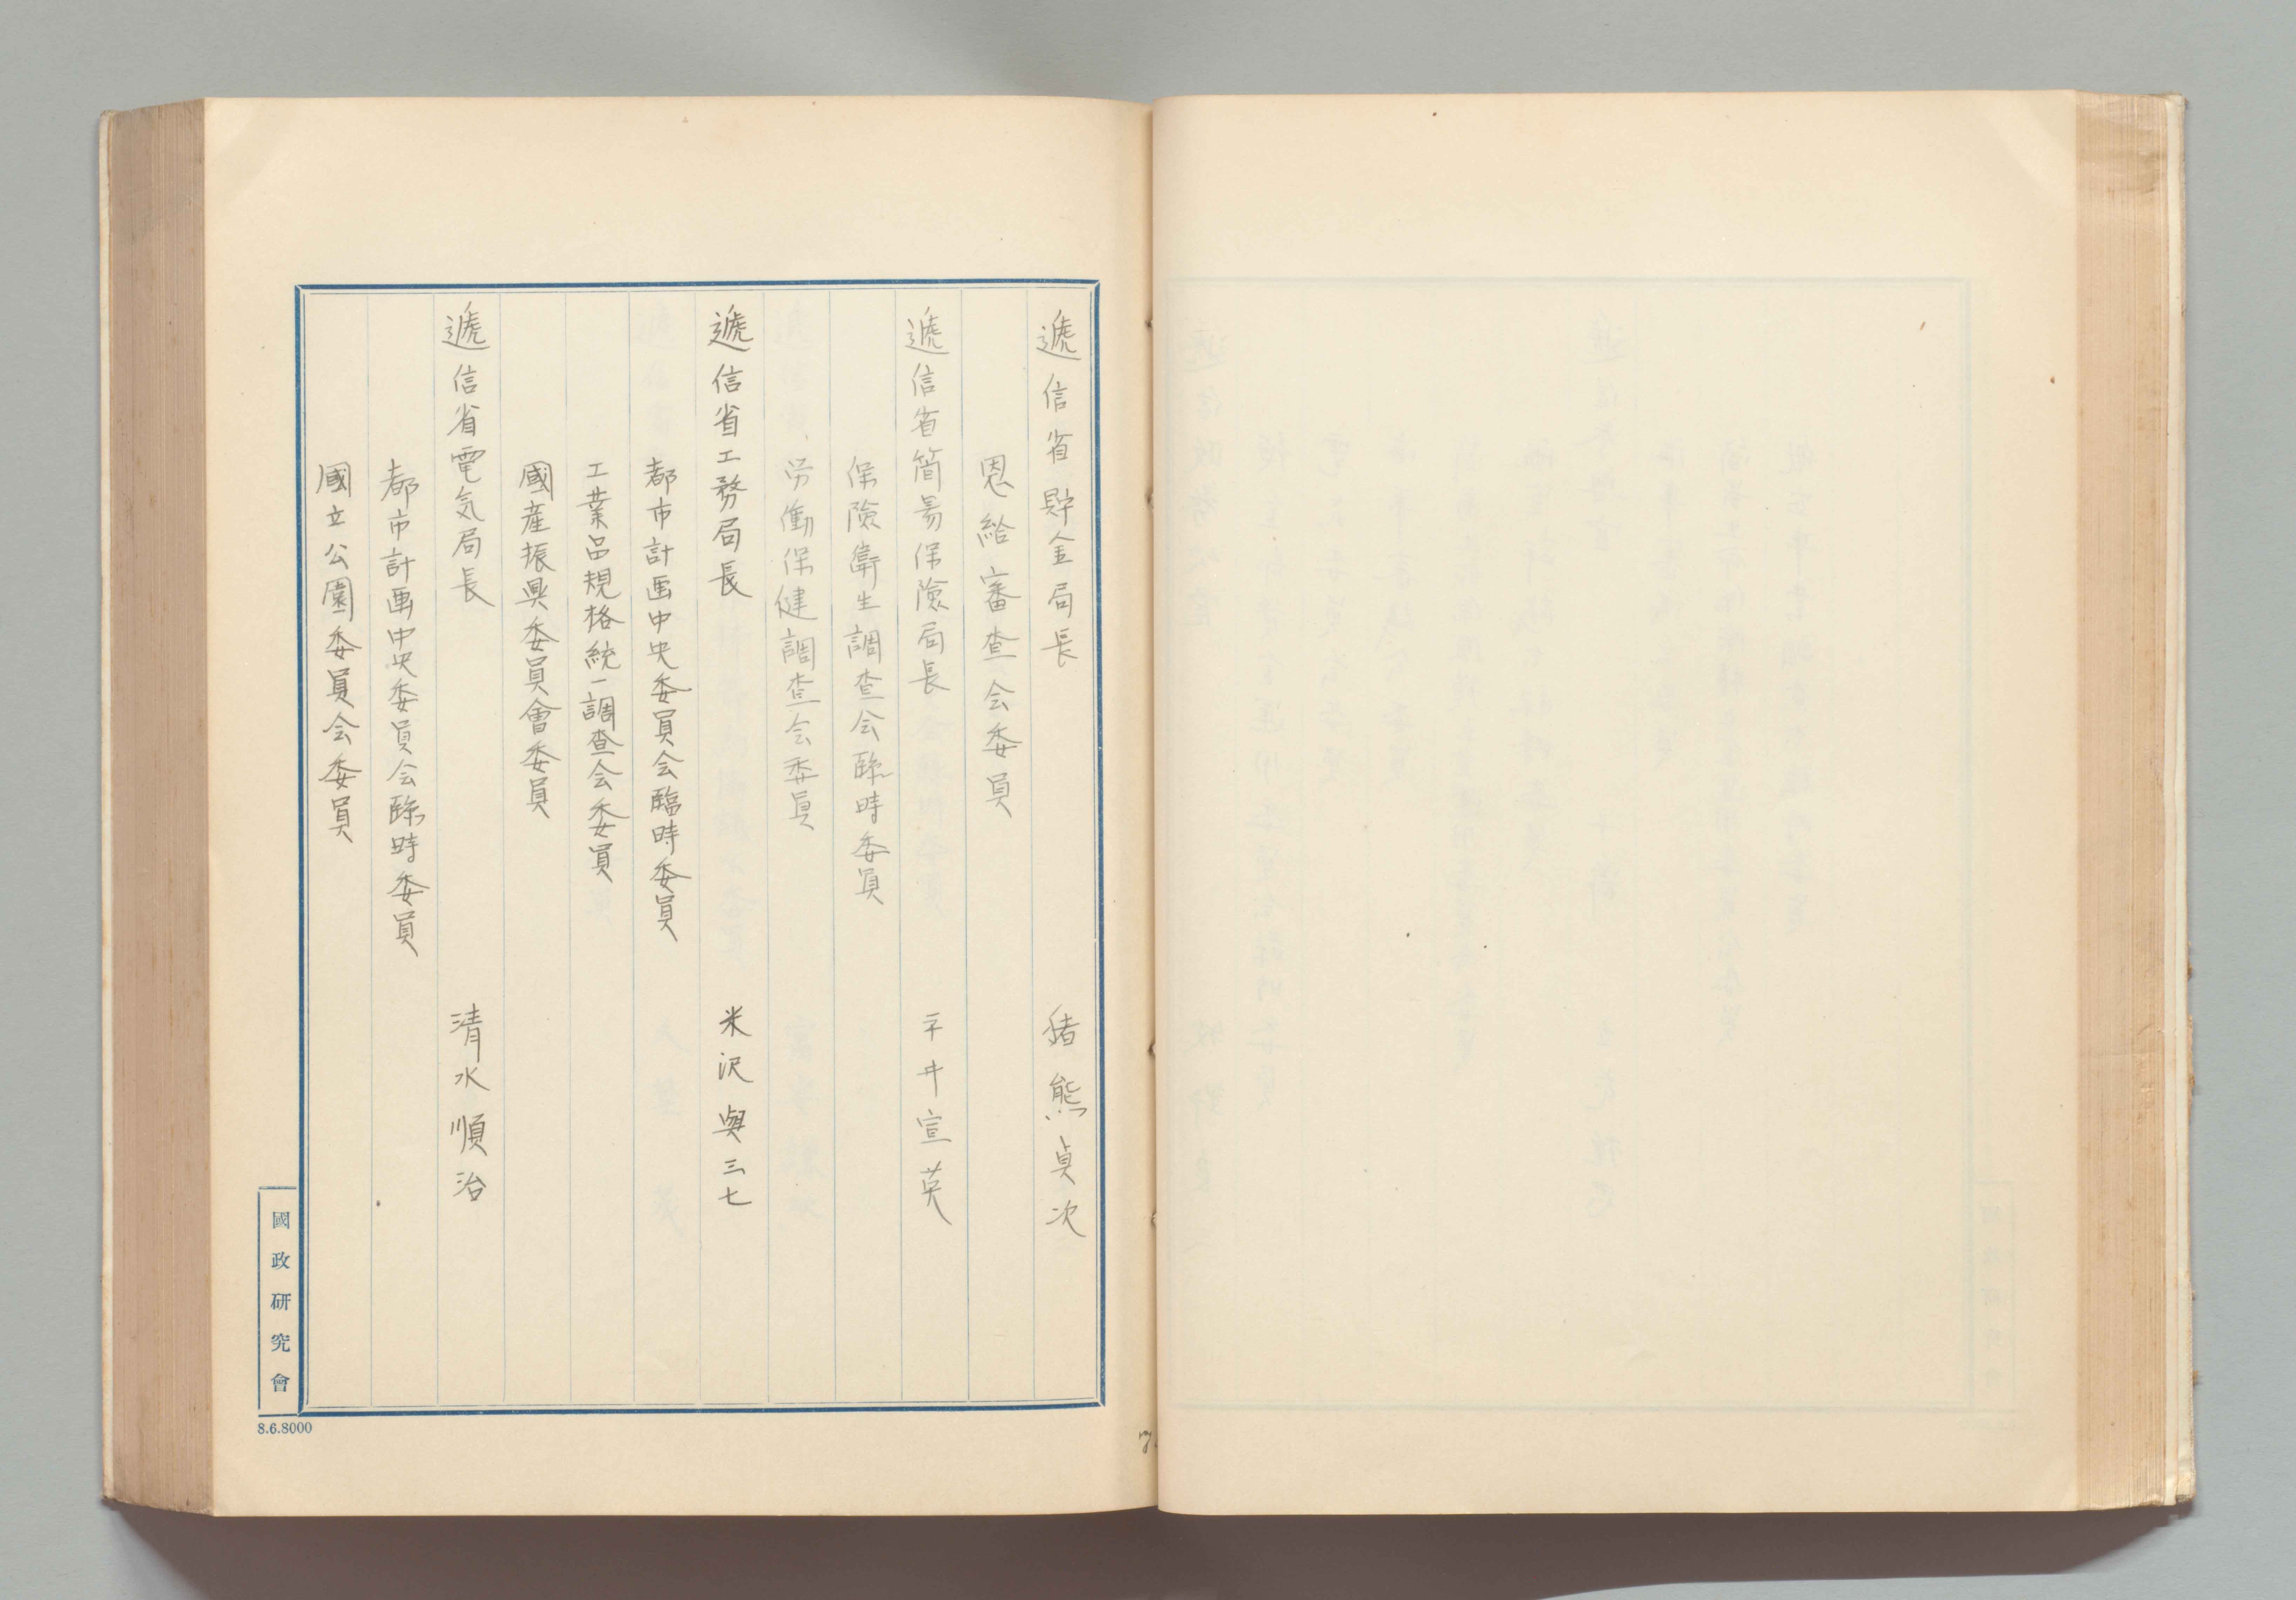 遞信省貯金局長 猪熊貞次
恩給審査会委員
遞信省簡易保險局長 平井宣英
保險衛生調査会臨時委員
労働保健調査会委員
遞信省工務局長 米沢與三七
都市計画中央委員会臨時委員
工業品規格統一調査会委員
國産振興委員會委員
遞信省電気局長 清水順治
都市計画中央委員会臨時委員
國立公園委員会委員
國政研究會
8.6.8000